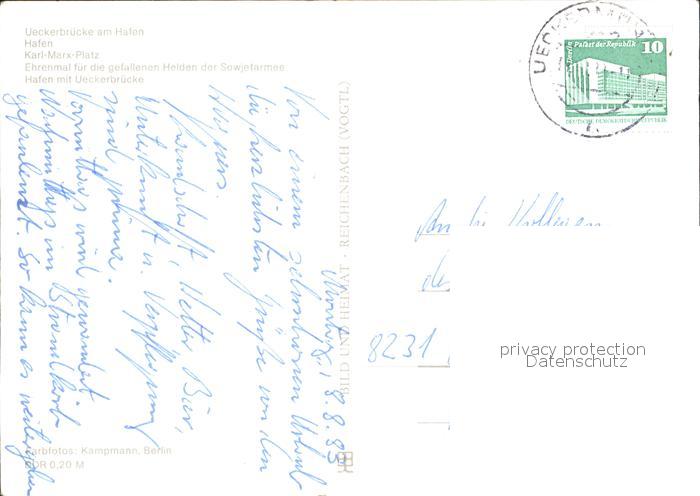 Ueckerbrücke am Hafen
Hafen
Karl-Marx-Platz
Ehrenmal für die gefallenen Helden der Sowjetarmee
Hafen mit Ueckerbrücke
8.8.83
Von einem schönen Urlaub
die herzlichsten Grüße von den
Landschaft Wetter Bier,
Unterkunft u. Verpflegung
sind prima.
Vormittags wird gewandert
Nachmittags im Strandkorb
gefaulenzt. So kann es weitergehen
Farbfotos: Kampmann, Berlin
DDR 0,20 M
BILD UND HEIMAT · REICHENBACH (VOGTL)
UECKERMÜNDE
Berlin Palast der Republik
10
DEUTSCHE DEMOKRATISCHE REPUBLIK
An
8231
privacy protection
Datenschutz